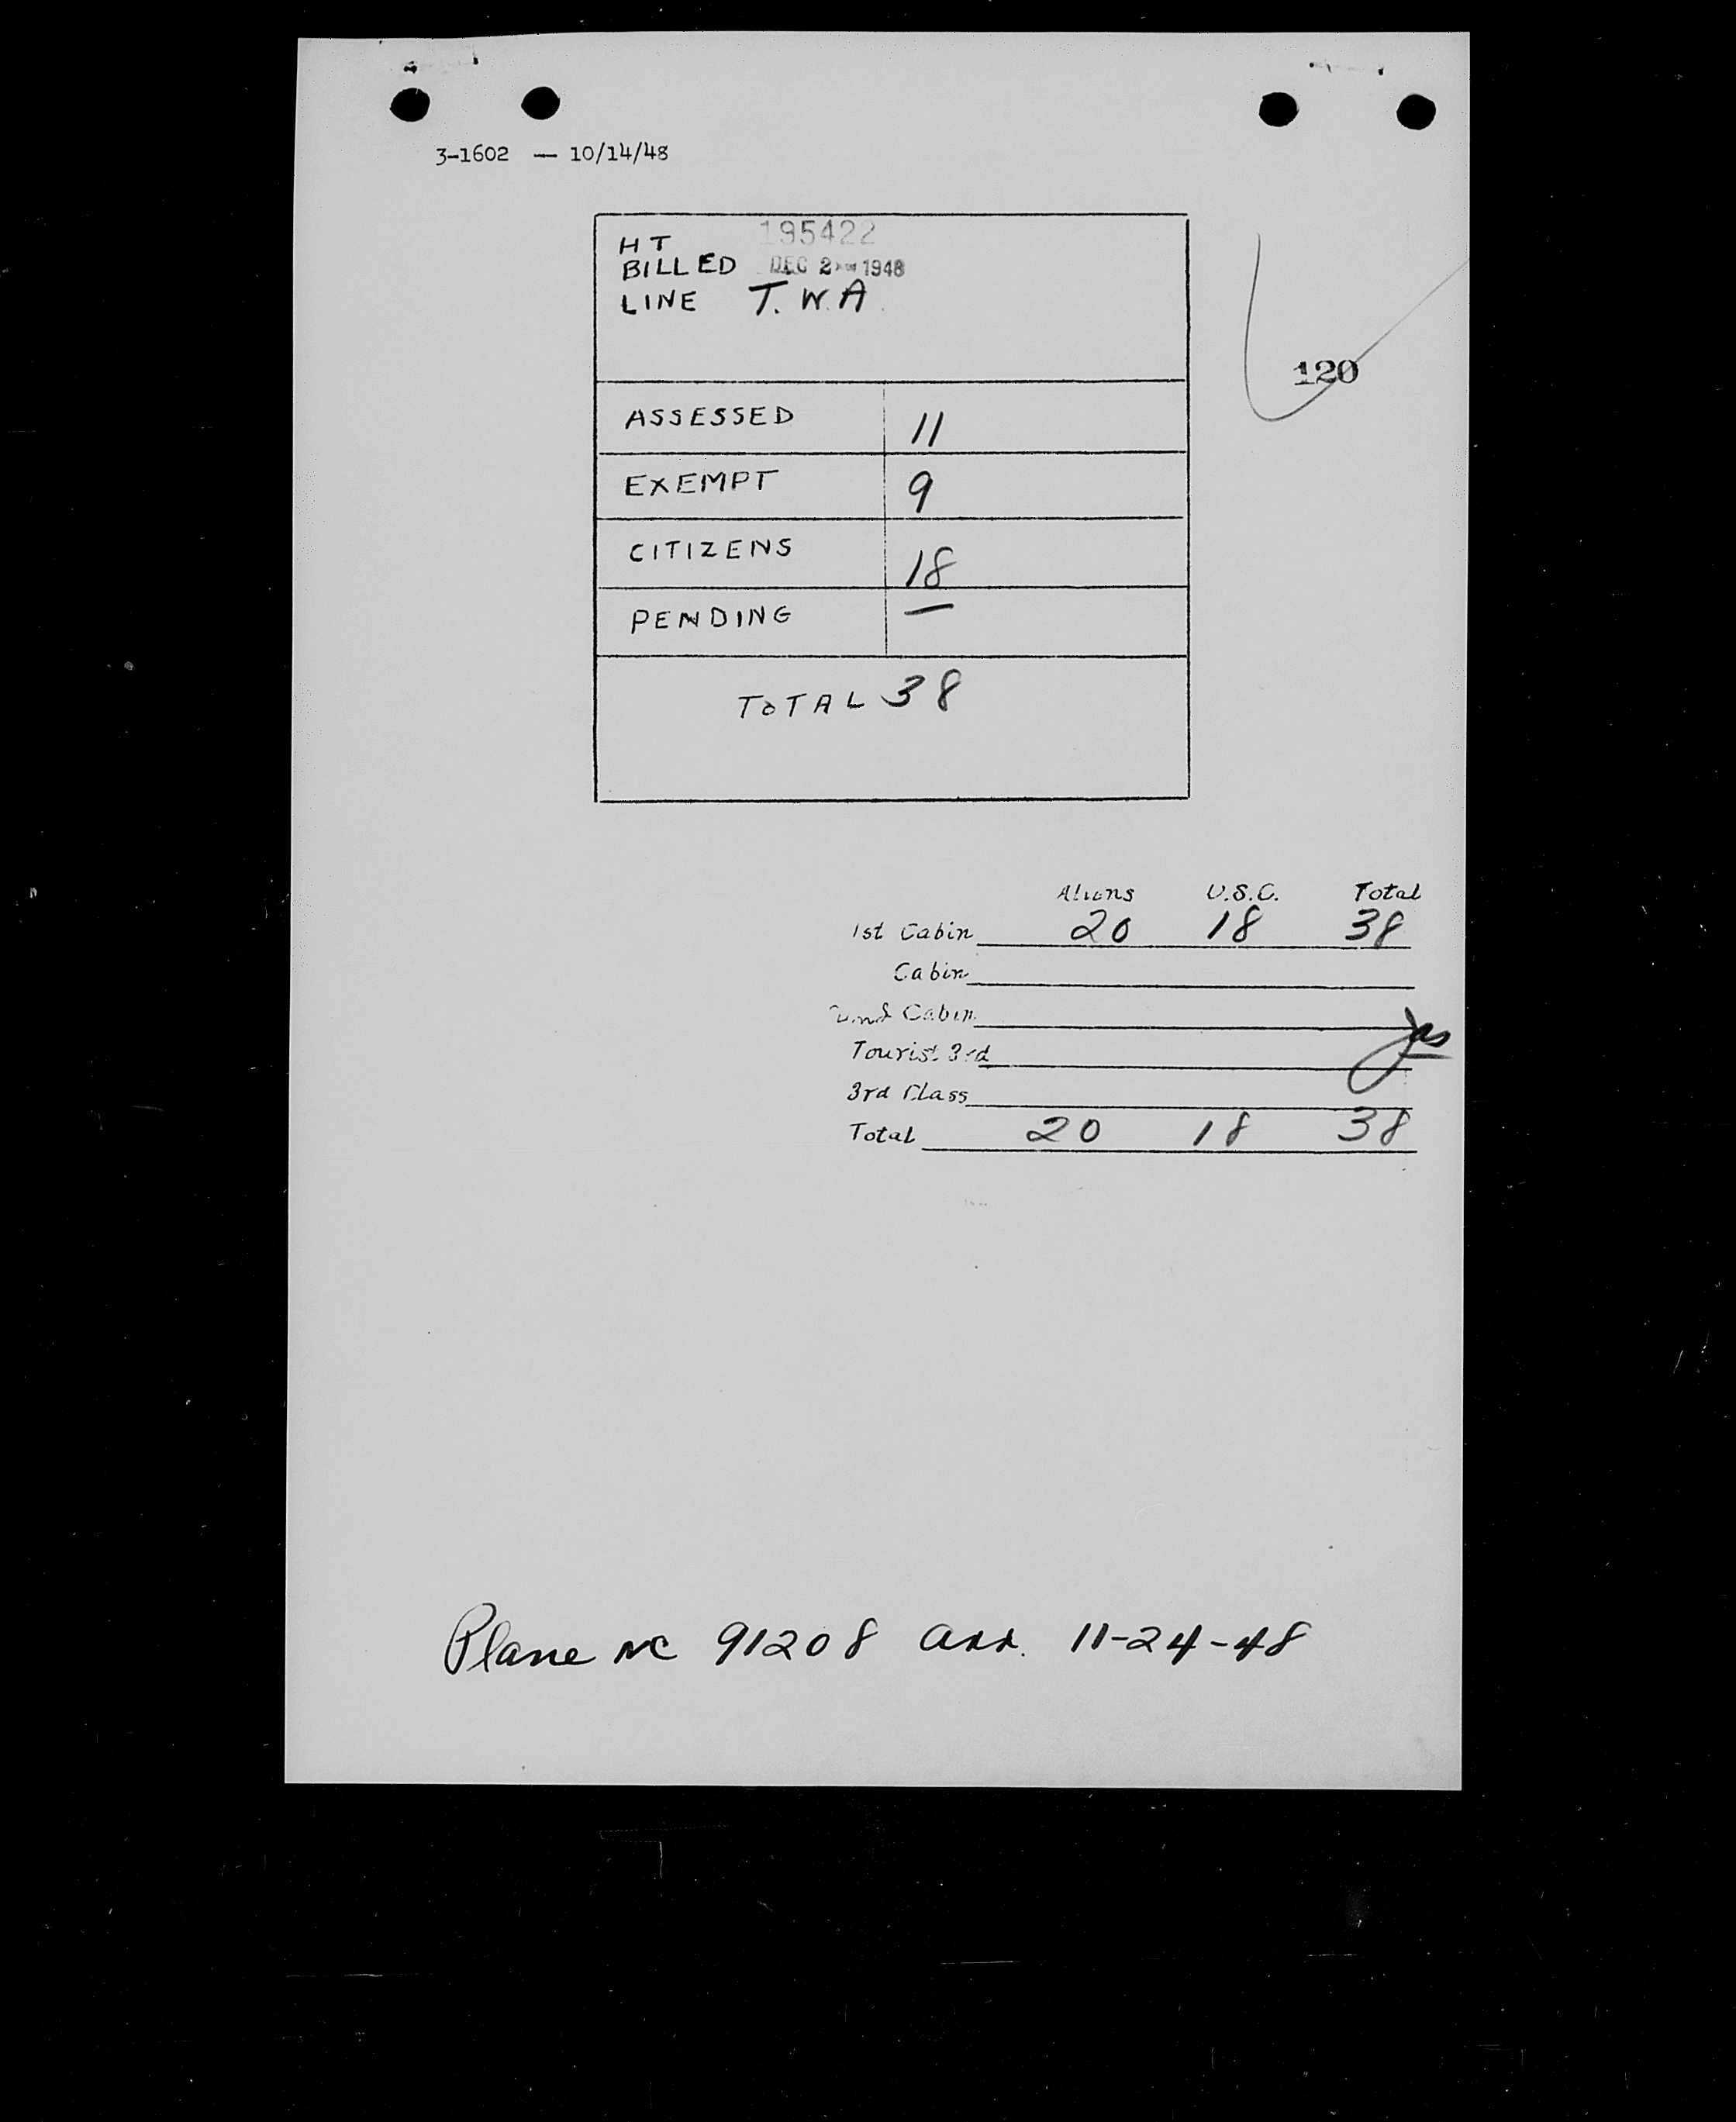 3-1602 — 10/14/48
HT 195422
BILLED DEC 2 1948
LINE T.W.A.
120
ASSESSED 11
EXEMPT 9
CITIZENS 18
PENDING —
TOTAL 38
Aliens U.S.C. Total
1st Cabin 20 18 38
Cabin
Cabin
Tourist 3rd
3rd Class
Total 20 18 38
Plane NC 91208 arr. 11-24-48